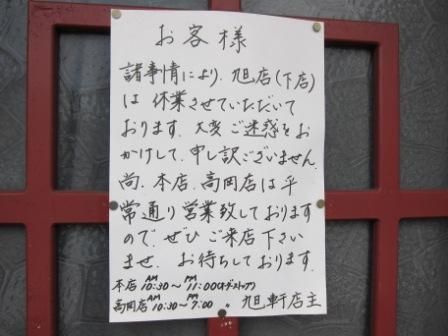 お客様
諸事情により、旭店(下店)
は休業させていただいて
おります。大変ご迷惑をお
かけして、申し訳ございません。
尚、本店、高岡店は平
常通り営業致しております
ので、ぜひご来店下さい
ませ。お待ちしております。
本店 AM10:30〜PM11:00(オーダーストップ)
高岡店 AM10:30〜PM7:00 〃 旭軒店主